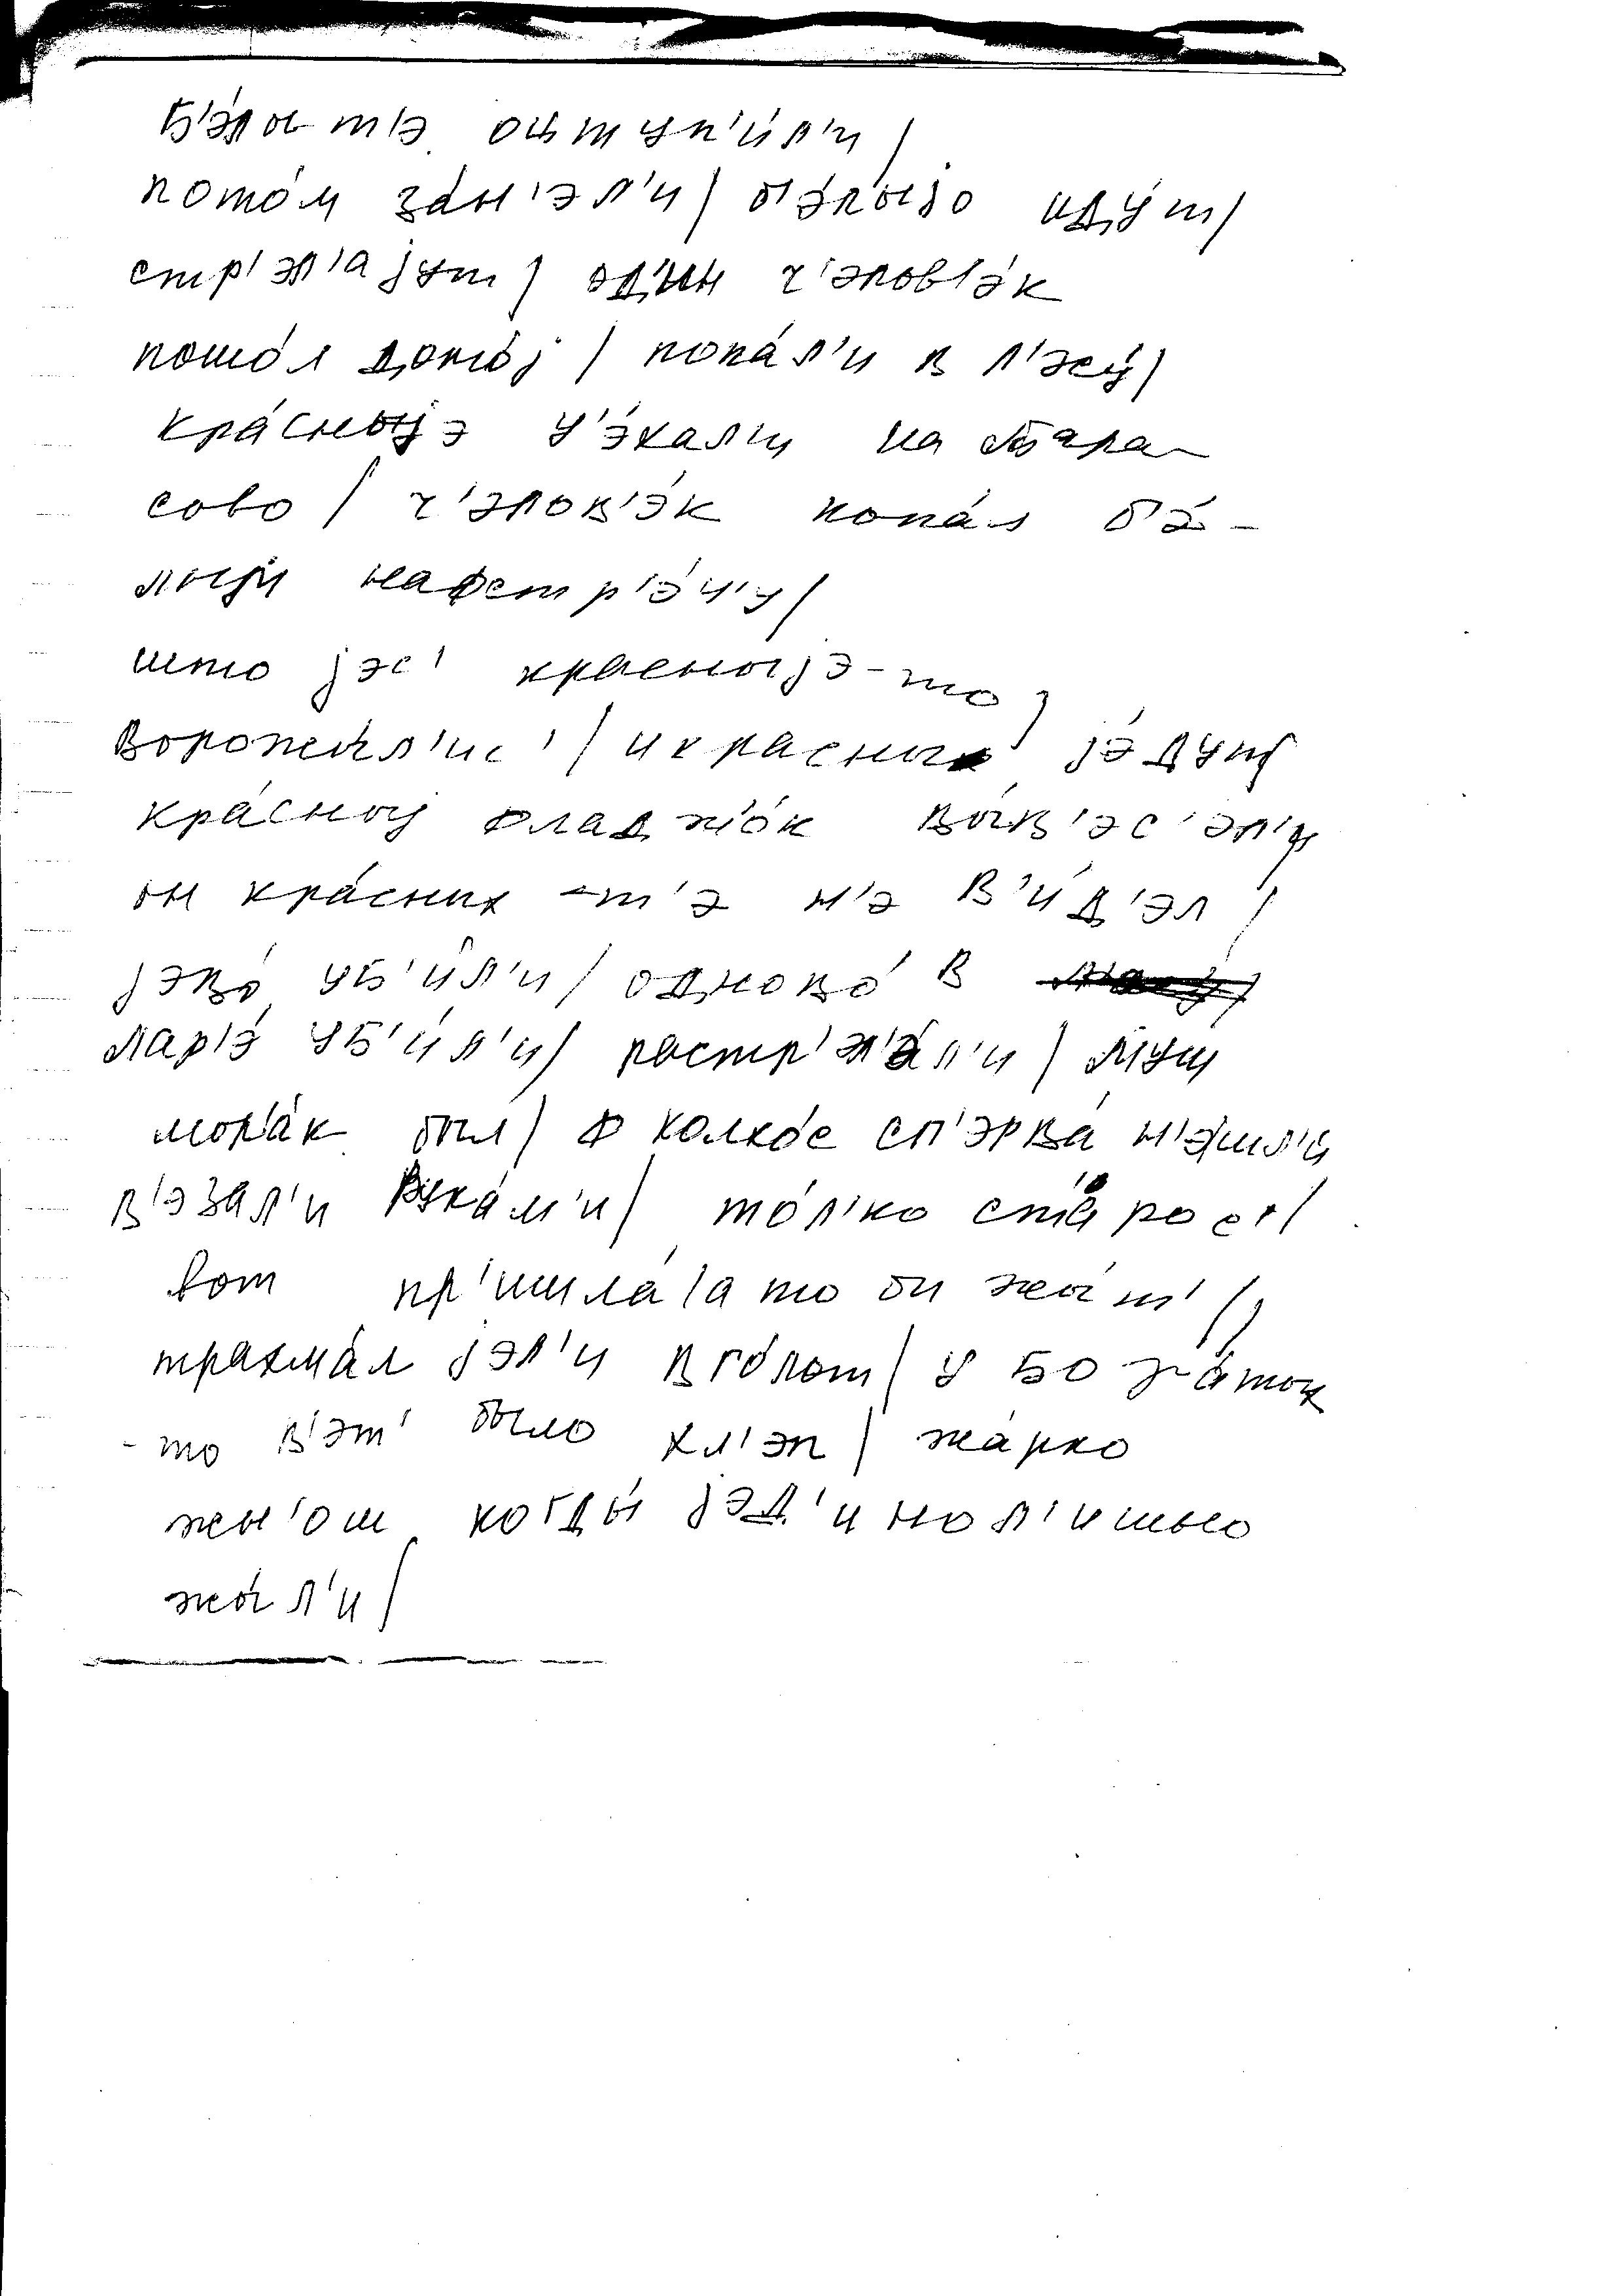 б'э́лоы т'э оцтуп'и́л'и /
пото́м за́н'эл'и / б'э́лыjо иду́т /
стр'эл'а́jут / од'ин ч'элов'э́к
пошо́л домо́j / попа́л'и в л'эсу́ /
кра́сныjэ у'э́хал'и на Тара-
сово / ч'элов'э́к попа́л б'э́-
лыjм нафстр'э́ч'у /
што jэс' красныjэ-то /
ворожы́л'ис' / и красных jэ́дут /
кра́сноj фладжо́к вы́в'эс'эл'и
он кра́сных -т'э н'э в'и́д'эл /
jэво́ уб'и́л'и / одново́ в
лар'э́ уб'и́л'и / ростр'эл'а́л'и / муш
мор'а́к был / ф колхо́с сп'эрва́ н'э шл'и́
в'эзал'и рука́м'и / то́л'ко ста́рос' /
вот пр'ишла́ / а то бы жы́т' //
трахма́л jэл'и в го́лот / у во з'а́ток
-то в'эт' было хл'эп / жа́рко
жн'ош когды́ jэд'инол'ишно
жы́л'и /